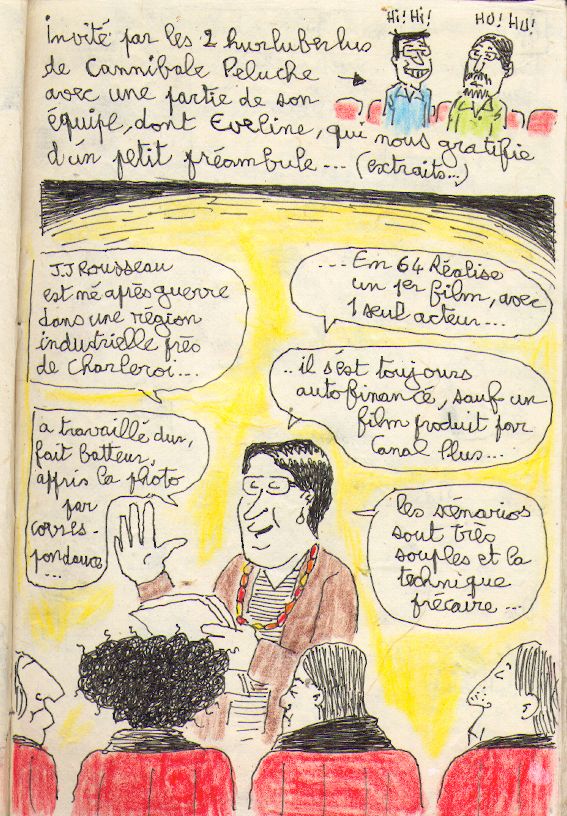 Hi! Hi!
HU! HU!
Invité par les 2 hurluberlus
de Cannibale Peluche
avec une partie de son
équipe, dont Eveline, qui nous gratifie
d'un petit préambule... (extraits...)
J.J Rousseau
est né après guerre
dans une région
industrielle près
de Charleroi...
... En 64 Réalise
un 1er film, avec
1 seul acteur...
.. il s'est toujours
autofinancé, sauf un
film produit par
Canal Plus...
a travaillé dur,
fait batteur,
appris la photo
par
corres-
pondance
...
les scénarios
sont très
souples et la
technique
précaire...